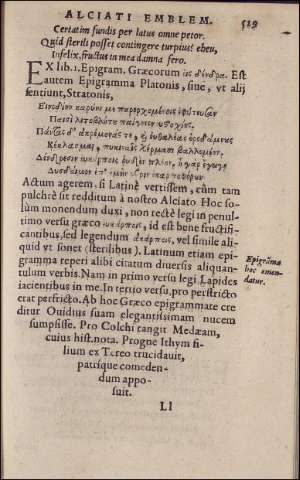 ALCIATI EMBLEM. 589
Certatim fundis per latus omne petor.
Quid sterili posset contingere turpius? eheu,
Infelix, fructus in mea damna fero.
EX lib.1. Epigram. Græcorum εἰς δένδρα. Est
autem Epigramma Platonis, siue, vt alij
sentiunt, Stratonis,
Εἰνοδίην καρύην με παρερχομένοις ἐφύτευσαν
Παισὶ λιθοβλήτου παίγνιον
Πάντας δ' ἀκρεμόνας τε, ἢ εὐθαλέας ὀροδάμνους
Κέκλασμαι, πυκιναῖς χερμάσι βαλλομένη.
Δένδρεσιν εὐκάρποις οὐδὲν πλέον, ἢ γὰρ ἔγωγε
Δυσδαίμων ἐς
Actum agerem, si Latinè vertissem, cùm tam
pulchrè sit redditum à nostro Alciato. Hoc so-
lùm monendum duxi, non rectè legi in penul-
timo versu græco εὐκάρποις, id est benè fructifi-
cantibus, sed legendum ἀκάρποις, vel simile ali-
quid vt sonet (sterilibus). Latinum etiam epi-
gramma reperi alibi citatum diuersis aliquan-
tulum verbis. Nam in primo versu legi Lapides
iacientibus in me. In tertio versu, pro perstricto
erat perfricto. Ab hoc Græco epigrammate cre
ditur Ouidius suam elegantissimam nucem
sumpsisse. Pro Colchi tangit Medæam,
cuius hist. nota. Progne Ithym fi-
lium ex Tereo trucidauit,
patríque comeden-
dum appo-
suit.
Epigrãma
hoc emen-
datur.
Ll